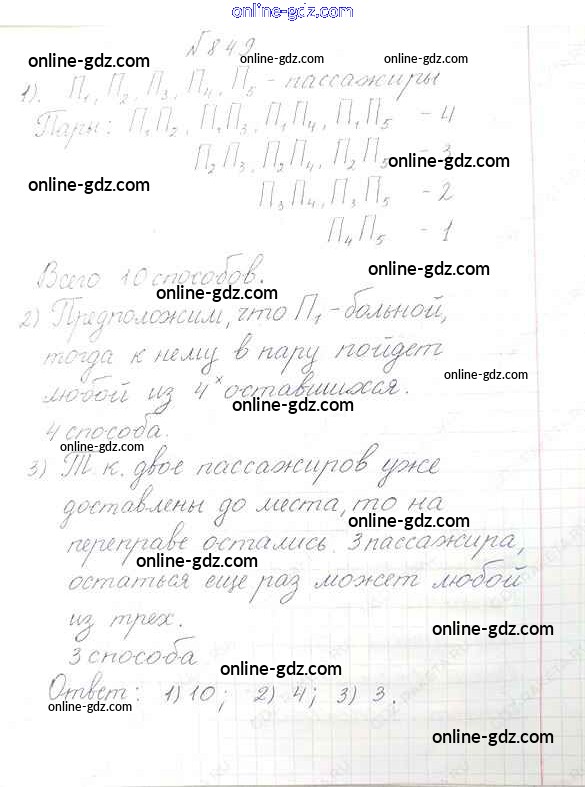 online-gdz.com
№ 842
online-gdz.com online-gdz.com
1). П₁, П₂, П₃, П₄, П₅ - пассажиры
online-gdz.com online-gdz.com
Пары: П₁П₂, П₁П₃, П₁П₄, П₁П₅ - 4
П₂П₃, П₂П₄, П₂П₅ - 3
online-gdz.com
online-gdz.com
П₃П₄, П₃П₅ - 2
П₄П₅ - 1
online-gdz.com
Всего 10 способов.
online-gdz.com
2) Предположим, что П₁ - больной,
тогда к нему в пару пойдет
online-gdz.com
любой из 4ˣ оставшихся.
online-gdz.com
4 способа.
online-gdz.com
3) Т.к. двое пассажиров уже
доставлены до места, то на
online-gdz.com
переправе остались 3 пассажира,
online-gdz.com
остаться еще раз может любой
из трех.
online-gdz.com
3 способа
online-gdz.com
Ответ: 1) 10; 2) 4; 3) 3.
online-gdz.com
online-gdz.com